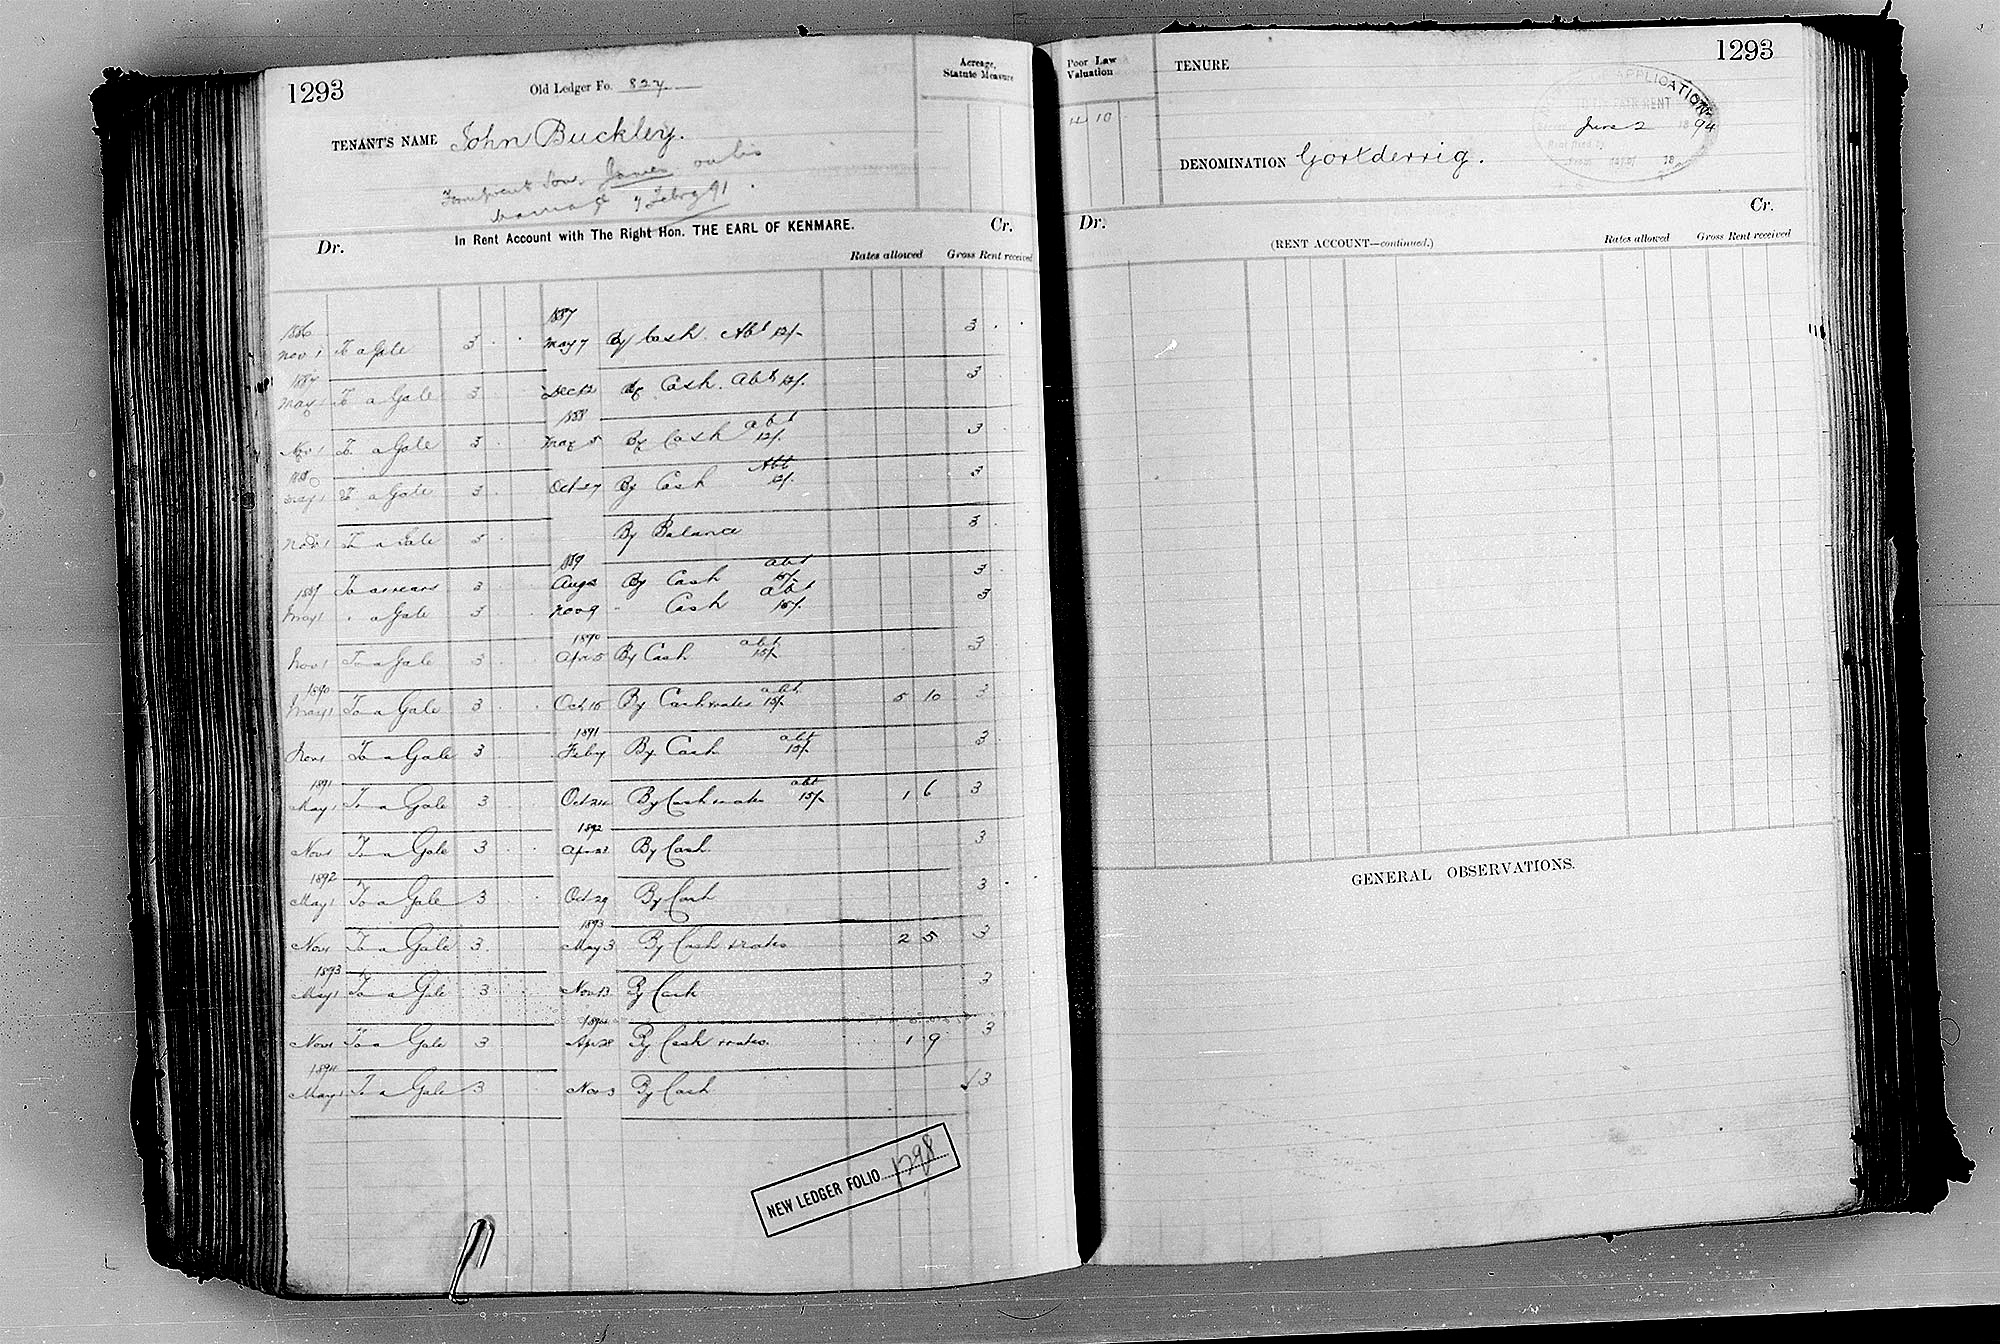 1293
Old Ledger Fo. 827
Acreage,
Statute Measure
TENANT'S NAME John Buckley.
son James on his
marriage 7 Febry 91
In Rent Account with The Right Hon. THE EARL OF KENMARE.
Dr. Cr.
Rates allowed Gross Rent received
1886 1887
Nov 1 To a Gale 3 . . May 7 By Cash. Abt 12/- 3 . .
1887
May 1 To a Gale 3 . . Dec 12 By Cash. Abt 12/- 3
1888
Nov 1 To a Gale 3 . . May 5 By Cash abt 12/- 3
1888
May 1 To a Gale 3 Oct 27 By Cash Abt 12/- 3
Nov 1 To a Gale 3 By Balance 3
1889
To arrears 3 Aug 2 By Cash abt 15/- 3
1889
May 1 " a Gale 3 Nov 9 " Cash abt 15/- 3
1890
Nov 1 To a Gale 3 Apr 5 By Cash abt 15/- 3
1890
May 1 To a Gale 3 Oct 16 By Cash & rates abt 15/- 5 10 3
1891
Nov 1 To a Gale 3 Feb 7 By Cash abt 15/- 3
1891
May 1 To a Gale 3 Oct 24 By Cash & rates abt 15/- 1 6 3
1892
Nov 1 To a Gale 3 Apr 23 By Cash 3
1892
May 1 To a Gale 3 Oct 29 By Cash 3
1893
Nov 1 To a Gale 3 May 3 By Cash & rates 2 5 3
1893
May 1 To a Gale 3 Nov 13 By Cash 3
1894
Nov 1 To a Gale 3 Apr 28 By Cash & rates 1 9 3
1894
May 1 To a Gale 3 Nov 3 By Cash 3
NEW LEDGER FOLIO 1798
Poor Law
Valuation
4 10
TENURE
1293
APPLICATION
TO FIX FAIR RENT
June 2 1894
Rent fixed by
From 18
DENOMINATION Gortderrig.
Dr. Cr.
(RENT ACCOUNT—continued.)
Rates allowed Gross Rent received
GENERAL OBSERVATIONS.